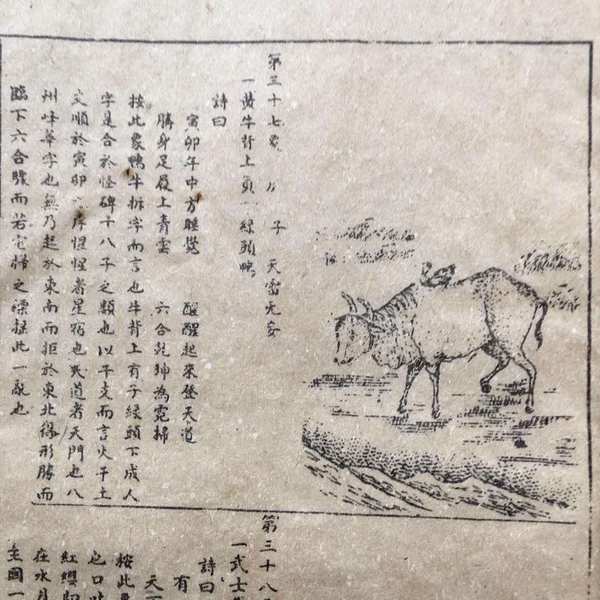 第三十七象 子 天雷无妄
一黄牛背上負一綠頭鴨
詩曰
寅卯年中方睡覺 醒醒起來登天道
騰身足履上青雲 六合乾坤為霓掃
按此象鴨牛拆字而言也牛背上有子綠頭下成人
字是合於怪碑十八子之類也以干支而言火子土
交順於寅卯 序惺惺者星宿也 道者天門也八
州峰華字也無乃起於東南而拒於東北得形勝而
臨下六合驟而若 掃之漂 此一亂也
第三十八
一武士
詩曰
有
天
按此
也口
紅纓
在水
主國一